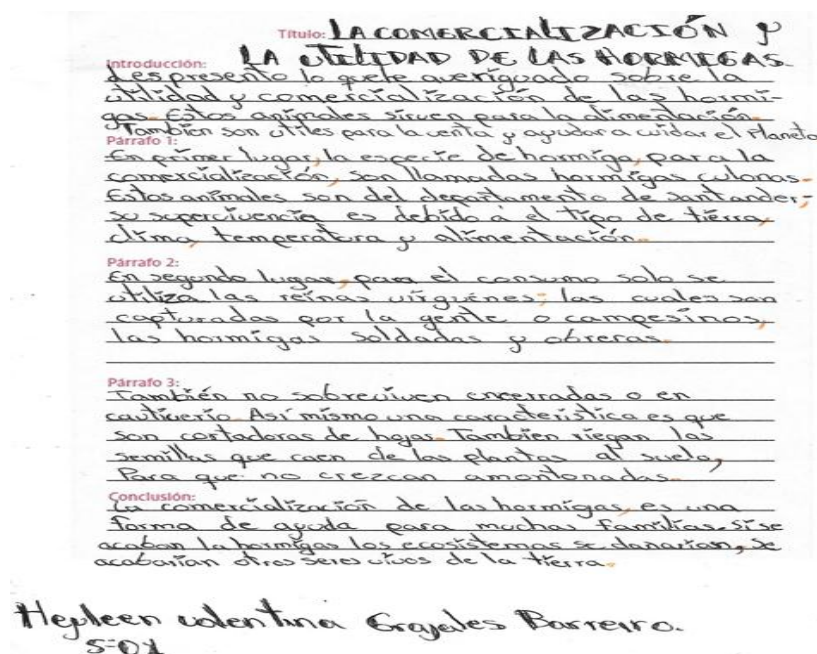 Título: LA COMERCIALIZACIÓN Y
LA UTILIDAD DE LAS HORMIGAS.
Introducción:
Les presento lo que e averiguado sobre la
utilidad y comercialización de las hormi-
gas. Estos animales sirven para la alimentación.
Tambien son utiles para la venta y ayudar a cuidar el Planeta
Párrafo 1:
En primer lugar, la especie de hormiga, para la
comercialización, son llamadas hormigas culonas.
Estos animales son del departamento de santander;
su supervivencia es debido a el tipo de tierra,
clima, temperatura y alimentación.
Párrafo 2:
En segundo lugar, para el consumo solo se
utiliza las reinas virguenes; las cuales son
capturadas por la gente o campesinos,
las hormigas soldadas y obreras.
Párrafo 3:
También no sobreviven encerradas o en
cautiverio. Así mismo una característica es que
son cortadoras de hojas. Tambien riegan las
semillas que caen de las plantas al suelo,
Para que no crezcan amontonadas.
Conclusión:
La comercialización de las hormigas, es una
forma de ayuda para muchas familias. si se
acaban la hormigas los ecosistemas se dañarian, se
acabarian otros seres vivos de la tierra.
valentina Grajales Barreiro.
5-01